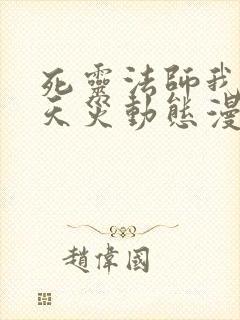 死靈法師我
天災動態漫
趙偉國